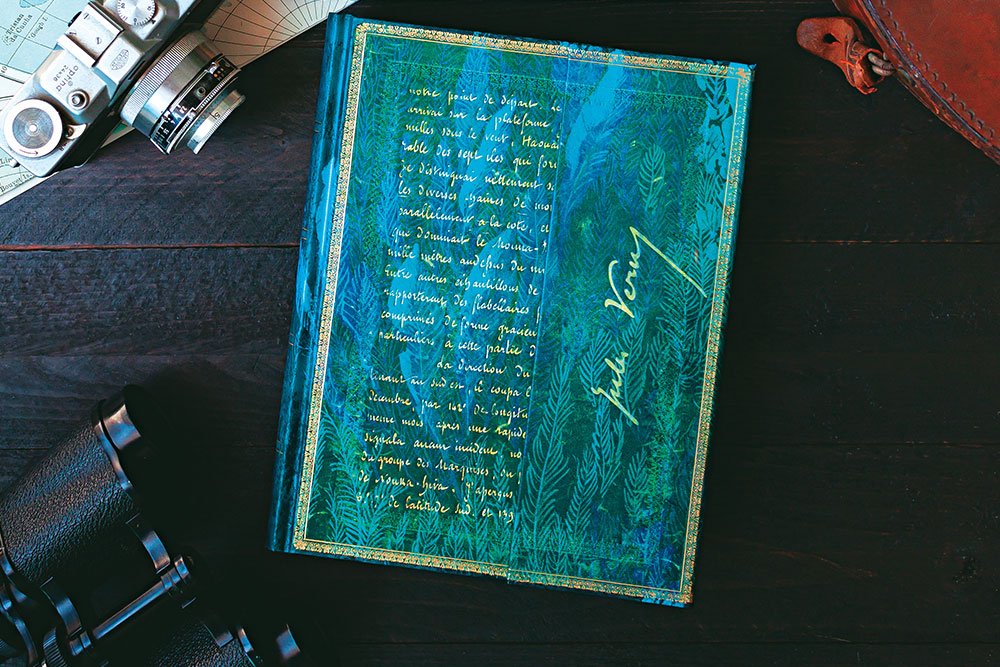 notre point de départ. Je
arrivai sur la plateforme
milles sous le vent, Haouaï
table des sept îles qui for
je distinguai nettement s
les diverses chaînes de mo
parallèlement à la côte, et
qui dominait le Mouna-
mille mètres au dessus du ni
Entre autres échantillons de
rapportèrent des flabellaires
comprimés de forme gracieu
particuliers à cette partie d
da direction du
linant au sud est, il coupa l
décembre, par 142° de longitu
même mois, après une rapide
signala aucun incident, no
du groupe des Marquises, du
de Nouka-hiva. J'aperçus
de latitude sud, et 139
Jules Verne
optina
24x36
Tristan
da Cunha
Gough I.